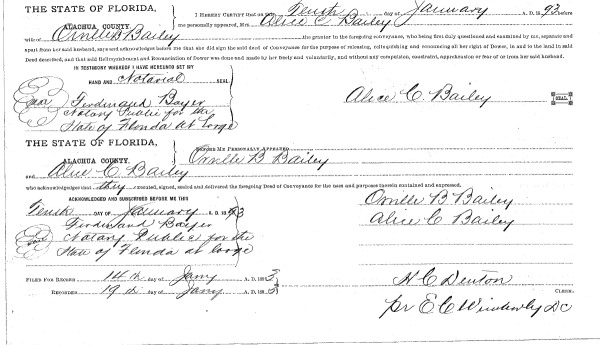 THE STATE OF FLORIDA,
ALACHUA COUNTY.
I HEREBY CERTIFY that on this Tenth day of January 1893 before
me personally appeared, Mrs. Alice C. Bailey
wife of Orville B Bailey the grantor in the foregoing conveyance, who being first duly questioned and examined by me, separate and
apart from her said husband, says and acknowledges before me that she did sign the said deed of Conveyance for the purpose of releasing, relinquishing and renouncing all her right of Dower, in and to the land in said
Deed described, and that said Relinquishment and Renunciation of Dower was done and made by her freely and voluntarily, and without any compulsion, constraint, apprehension or fear of or from her said husband.
IN TESTIMONY WHEREOF I HAVE HEREUNTO SET MY
HAND AND Notarial SEAL
Ferdinand Bayer
Notary Public for the
State of Florida at Large
Alice C. Bailey
SEAL.
THE STATE OF FLORIDA,
ALACHUA COUNTY.
BEFORE ME PERSONALLY APPEARED
Orville B Bailey
and Alice C. Bailey
who acknowledges that they executed, signed, sealed and delivered the foregoing Deed of Conveyance for the uses and purpose therein contained and expressed.
ACKNOWLEDGED AND SUBSCRIBED BEFORE ME THIS
Tenth DAY OF January A. D. 1893
Ferdinand Bayer
Notary Public for the
State of Florida at large
Orville B Bailey
Alice C Bailey
FILED FOR RECORD 14th day of Jany A. D. 1893
RECORDED 19th day of Jany A. D. 1893
H C Denton
CLERK.
pr E C Wimberly DC